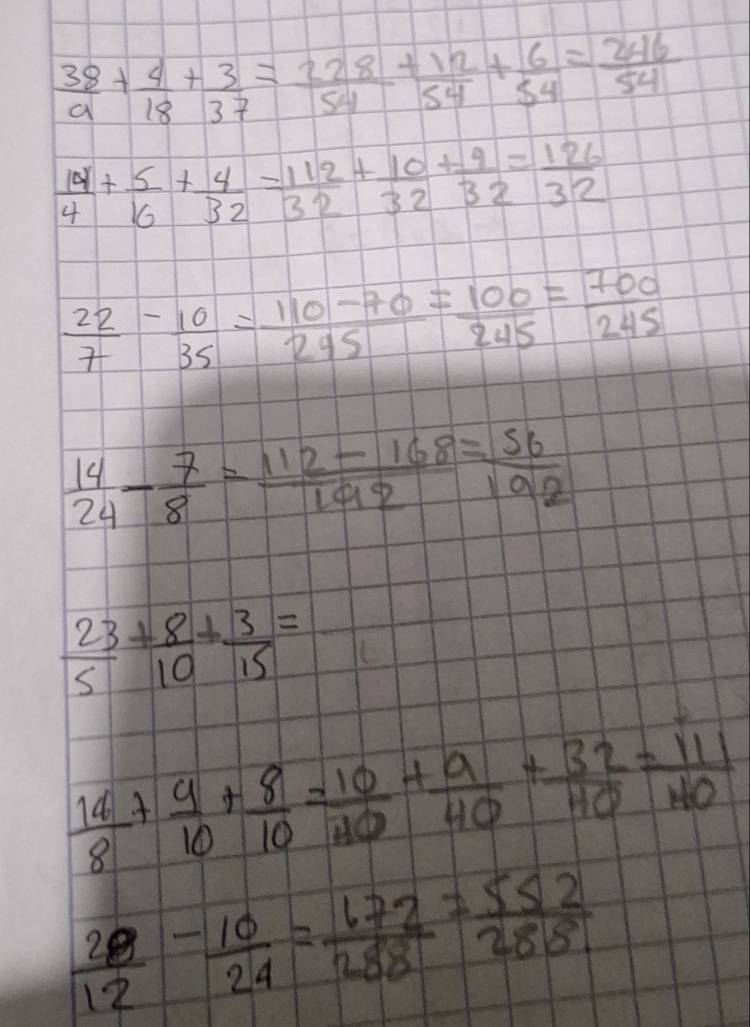 38/9 + 4/18 + 3/37 = 228/54 + 12/54 + 6/54 = 246/54
14/4 + 5/16 + 4/32 = 112/32 + 10/32 + 4/32 = 126/32
22/7 - 10/35 = 110-70/245 = 100/245 = 700/245
14/24 - 7/8 = 112-168/192 = 56/192
23/5 + 8/10 + 3/15 =
14/8 + 9/10 + 8/10 = 10/40 + 9/40 + 32/40 = 111/40
28/12 - 10/24 = 672/288 = 552/288